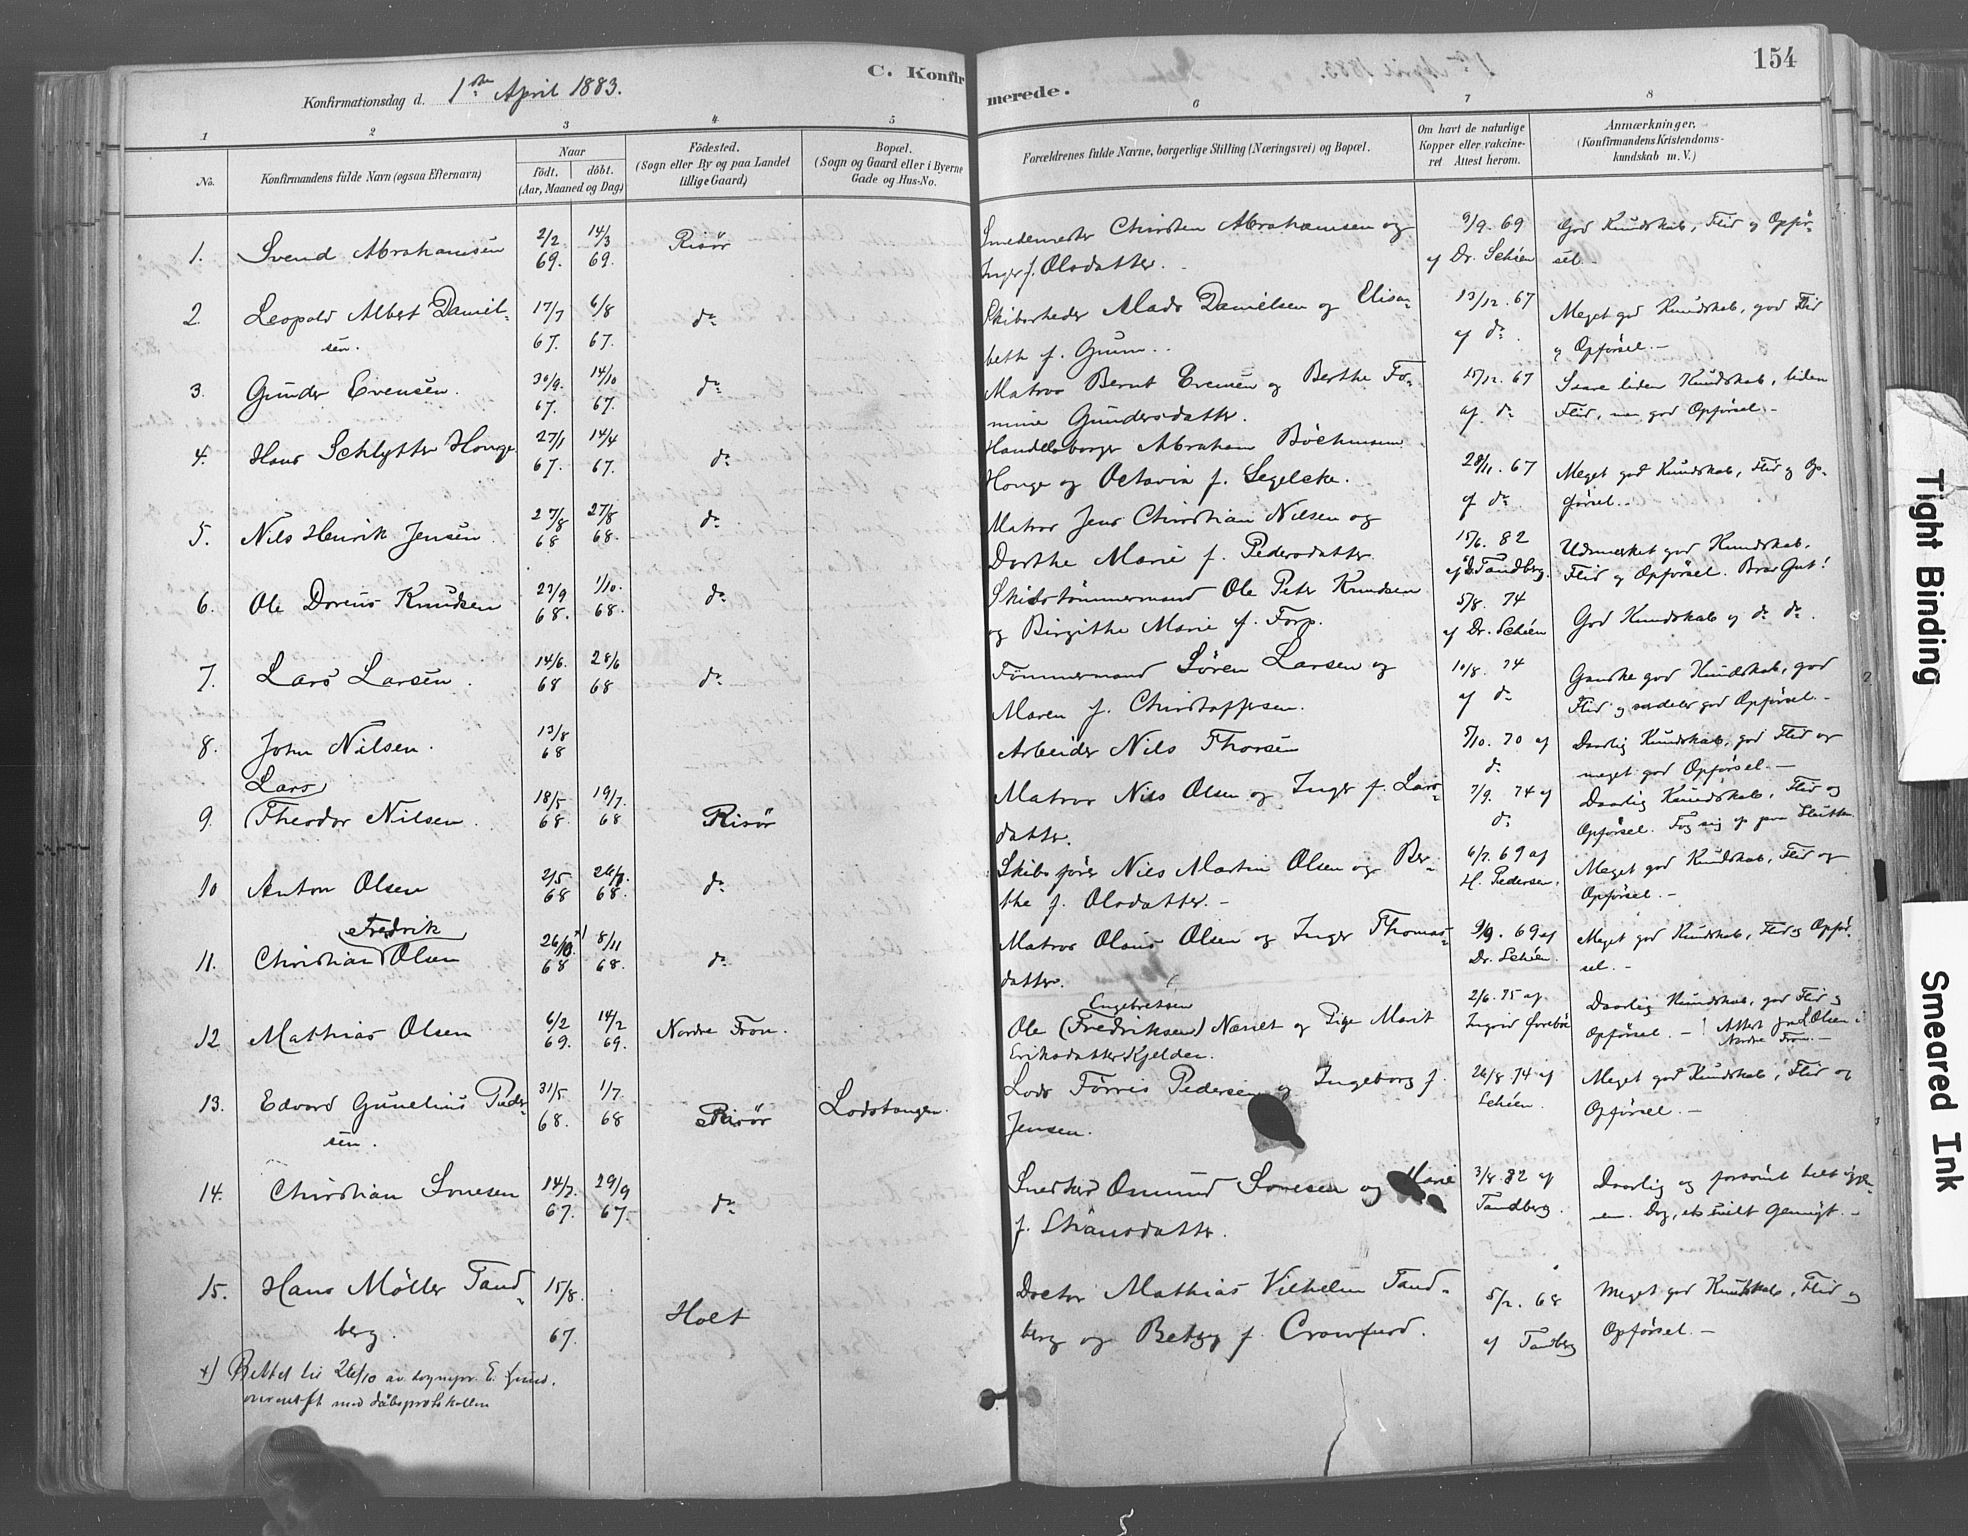 154
C. Konfirmerede.
Konfirmationsdag d. 1ste April 1883.
1 2 3 4 5 6 7 8
No.
Konfirmandens fulde Navn (ogsaa Efternavn)
Naar
födt. döbt.
(Aar, Maaned og Dag)
Födested.
(Sogn eller By og paa Landet
tillige Gaard.)
Bopæl.
(Sogn og Gaard eller i Byerne
Gade og Hus-No.
Forældrenes fulde Navne, borgerlige Stilling (Næringsvei) og Bopæl.
Om havt de naturlige
Kopper eller vakcine-
ret Attest herom.
Anmærkninger.
(Konfirmandens Kristendoms-
kundskab m. V.)
1. Svend Abrahamsen 2/2 69. 14/3 69. Risör
Smedemester Christen Abrahamsen og
Inger f. Olsdatter.
9/9. 69
af Dr. Schien
God Kundskab, Flid og Opför-
sel.
2. Leopold Albert Daniel-
sen. 17/7 67. 6/8 67. do
Danielsen og Elisa-
beth f.
13/12. 67
af do.
Meget god Kundskab, god Flid
og Opförsel. -
3. Gunder Evensen. 30/9. 67. 14/10 67. do
Matros Bernt Evensen og Berthe To-
mine Gundersdatter.
15/12. 67
af do
Saare liden Kundskab, liden
Flid, men god Opförsel -
4. Hans Schlytter Houge 27/1 67. 14/4 67. do
Handelsborger Abraham Böckmann
Houge og Octavia f. Segelcke.
28/11. 67
af do
Meget god Kundskab, Flid og Op-
försel.
5. Nils Henrik Jensen 27/8 68 27/8 68. do
Matros Jens Christian Nilsen og
Dorthe Marie f. Pedersdatter
15/6. 82
af Dr. Tandberg.
Udmærket god Kundskab,
Flid og Opförsel. Brav Gut!
6. Ole Doreus Knudsen 23/9 68. 1/10. 68. do
Skibstömmermand Ole Peter Knudsen
og Birgithe Marie f. Torp.
5/8. 74
af Dr. Schien
God Kundskab og do do.
7. Lars Larsen. 14/6. 68 28/6 68 do
Tömmermand Sören Larsen og
Maren f. Christoffersen.
10/8. 74
af do
Ganske god Kundskab, god
Flid og særdeles god Opförsel. -
8. John Nilsen. 13/8 68
Arbeider Nils Thorsen
5/10. 70 af
do
Daarlig Kundskab, god Flid og
meget god Opförsel. -
9. Lars
(Theodor Nilsen. 18/5 68. 19/7. 68 Risör
Matros Nils Olsen og Inger f. Lars-
datter.
7/9. 74 af
do
Daarlig Kundskab, Flid og
Opförsel. Tog sig op paa Slutten.
10 Anton Olsen 2/5 68 26/7. 68. do
Skibsförer Nils Martin Olsen og Ber-
the f. Olsdatter. -
6/7. 69 af
H. Pedersen.
Meget god Kundskab, Flid og
Opförsel. -
11. Fredrik
Christian Olsen 26/10 x) 68 8/11 68. do
Matros Olaus Olsen og Inger Thomas-
datter.
9/9. 69 af
Dr. Schien.
Meget god Kundskab, Flid og Opför-
sel. -
12 Matthias Olsen 6/2 69. 14/2 69. Nordre Fron.
Engebretsen
Ole (Fredriksen) Næset og Pige Marit
Eriksdatter Kjelden.
2/6. 75 af
Ingvor
Daarlig Kundskab, god Flid og
Opförsel. - ! Attest fra Olsen i
Nordre Fron. -
13. Edvard Gunelius Peder-
sen. 31/5 68. 1/7. 68 Risör Lodstangen.
Lods Törris Pedersen og Ingeborg f.
Jensen.
26/8 74 af
Schien.
Meget god Kundskab, Flid og
Opförsel. -
14. Christian Sivesen 14/7. 67. 29/9 67. do
Snedker Osmund Sivesen og Marie
f.
3/8. 82 af
Tandberg.
Daarlig og forsömt helt igjen-
em. Dog, et snilt Gemyt. -
15. Hans Möller Tand-
berg. 15/8. 67. Holt
Doctor Mathias Vilhelm Tand-
berg og Betzy f. Crowfurd.
5/2. 68
af Tandberg
Meget god Kundskab, Flid og
Opförsel. -
x) Rettet til 26/10 av sognepr. E.
overensst. med dåbsprotokollen
Tight Binding
Smeared Ink